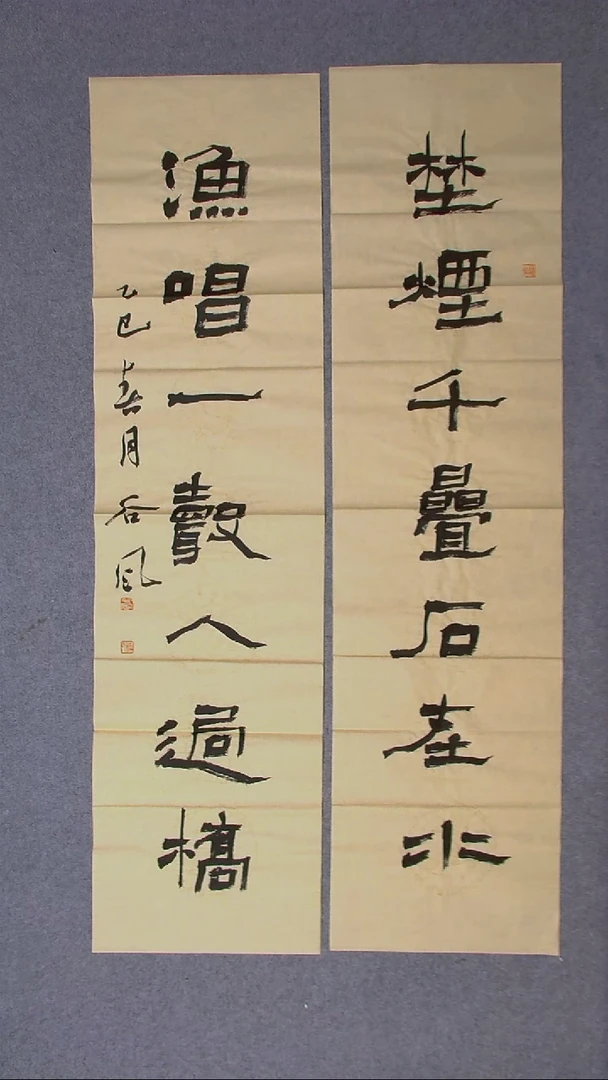 埜煙千疊石在水
漁唱一聲人過橋
乙巳春月 风